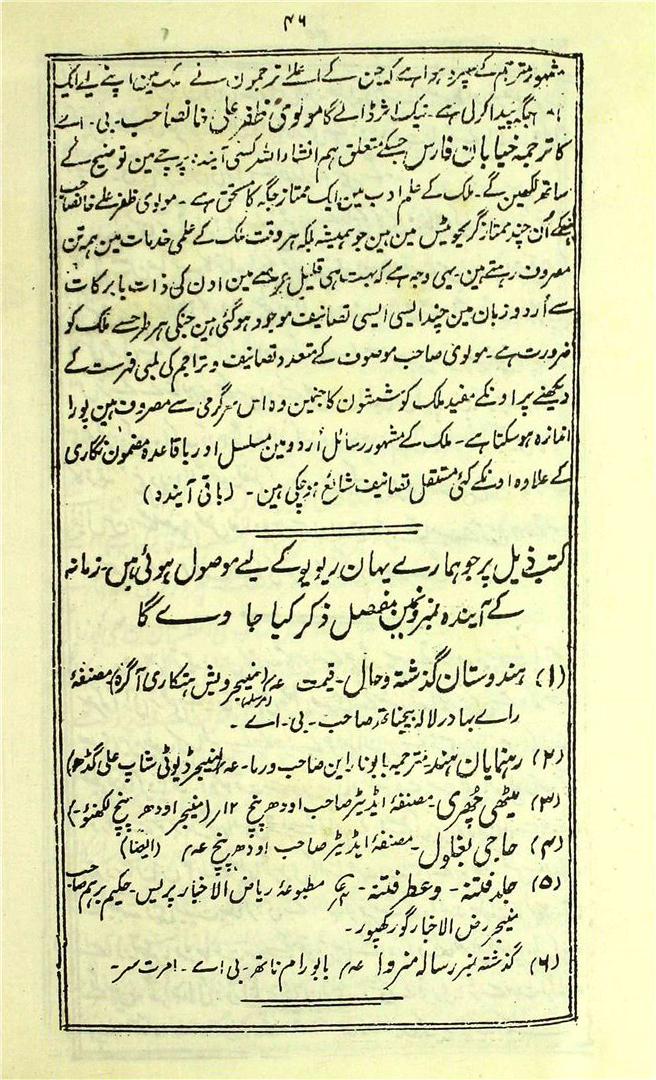 ۴۶
مشہور مترجم کے سپرد ہوا ہے کہ جن کے اعلےٰ ترجمون نے ملک مین اپنے لیے ایک
جگہ پیدا کرلی ہے۔ نیک اثر ڈالے گا مولوی ظفر علی خانصاحب۔ بی۔ اے
کا ترجمہ خیابان فارس جسکے متعلق ہم انشاء اللہ کسی آیندہ پرچے مین توضیح کے
ساتھ لکھین گے۔ ملک کے علم ادب مین ایک ممتاز جگہ کا مستحق ہے۔ مولوی ظفر علے خانصاحب
اُن چند ممتاز گریجوٹیس مین ہین جو ہمیشہ بلکہ ہر وقت ملک کے علمی خدمات مین ہمہ تن
مصروف رہتے ہین۔ یہی وجہ ہے کہ بہت ہی قلیل عرصے مین اون کی ذات بابرکات
سے اُردو زبان مین چند ایسی ایسی تصانیف موجود ہوگئی ہین جنکی ہر طرح سے ملک کو
ضرورت ہے۔ مولوی صاحب موصوف کے متعدد تصانیف و تراجم کی لمبی فہرست کے
دیکھنے پر اونکے مفید ملک کوششون کا جنمین وہ اس سرگرمی سے مصروف ہین پورا
اندازہ ہوسکتا ہے۔ ملک کے مشہور رسائل اُردو مین مسلسل اور باقاعدہ مضمون نگاری
کے علاوہ اونکے کئی مستقل تصانیف شائع ہوچکی ہین۔ (باقی آیندہ)
کتب ذیل پر جو ہمارے یہان ریویو کے لیے موصول ہوئی ہیں۔ زمانہ
کے آیندہ نمبرونمین مفصل ذکر کیا جاوے گا
(۱) ہندوستان گذشتہ وحال۔ قیمت عہ (منیجر ویش ہتکاری آگرہ) مصنفۂ
راے بہادر لالہ بیجناتھ صاحب۔ بی۔ اے۔
(۲) رہنمایان ہند مترجمہ بابو نراین صاحب ورما۔ عہ (منیجر ڈیوٹی شاپ علی گڈھ)
(۳) میٹھی چھری۔ مصنفۂ اڈیٹر صاحب اودھ پنچ ۱۲ر (منیجر اودھ پنچ لکھنؤ۔)
(۴) حاجی بغلول۔ مصنفۂ ایڈیٹر صاحب اودھ پنچ عہ (ایضًا)
(۵) جلد فتنہ۔ وعطر فتنہ۔ مطبوعۂ ریاض الاخبار پریس۔ حکیم برہم صاحب
منیجر ریض الاخبار گورکھپور۔
(۶) گذشتہ نمبر رسالہ منروا عہ بابو رام ناتھ۔ بی اے۔ امرت سر۔